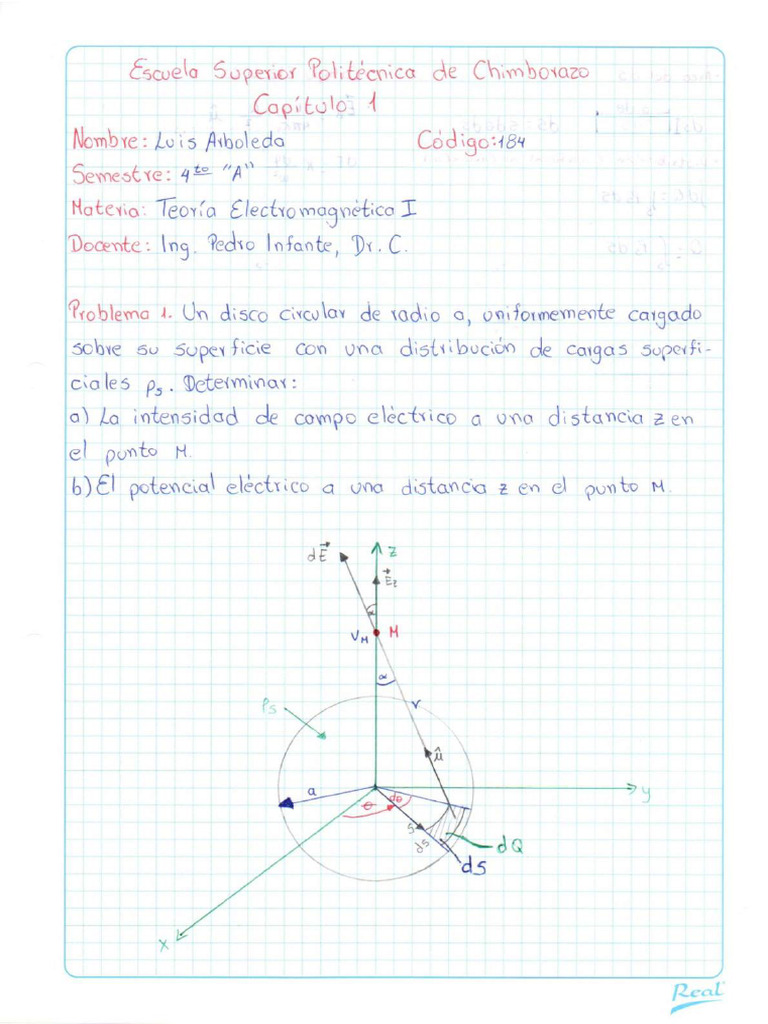 Escuela Superior Politécnica de Chimborazo
Capítulo 1
Nombre: Luis Arboleda Código:184
Semestre: 4to "A"
Materia: Teoría Electromagnética I
Docente: Ing. Pedro Infante, Dr. C.
Problema 1. Un disco circular de radio a, uniformemente cargado
sobre su superficie con una distribución de cargas superfi-
ciales ρs. Determinar:
a) La intensidad de campo eléctrico a una distancia z en
el punto M.
b) El potencial eléctrico a una distancia z en el punto M.
dE⃗ z
E⃗z
α
VM M
α
ρs r
û
a θ dθ y
s ds dQ
dS
x
Real